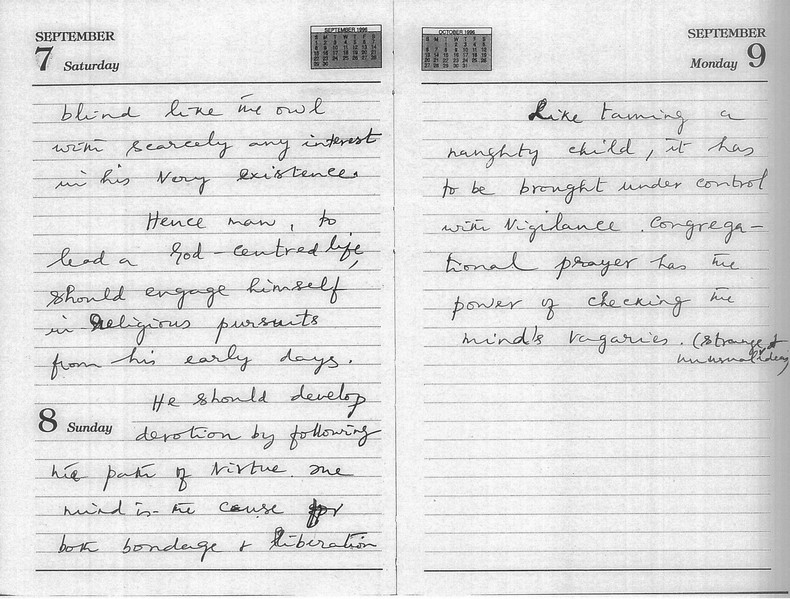 SEPTEMBER
7 Saturday
SEPTEMBER 1996
blind like the owl
with scarcely any interest
in his very existence.
Hence man, to
lead a God-centred life,
should engage himself
in Religious pursuits
from his early days.
He should develop
8 Sunday
devotion by following
the path of Virtue. The
mind is the cause for
both bondage & liberation
OCTOBER 1996
SEPTEMBER
Monday 9
Like taming a
naughty child, it has
to be brought under control
with Vigilance. Congrega-
tional prayer has the
power of checking the
mind's vagaries. (strange &
unusual ideas)